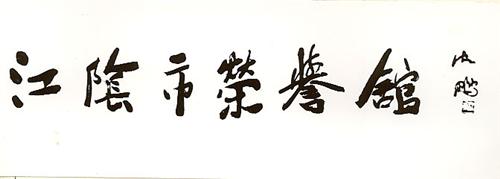 江陰市榮譽館
沈鵬